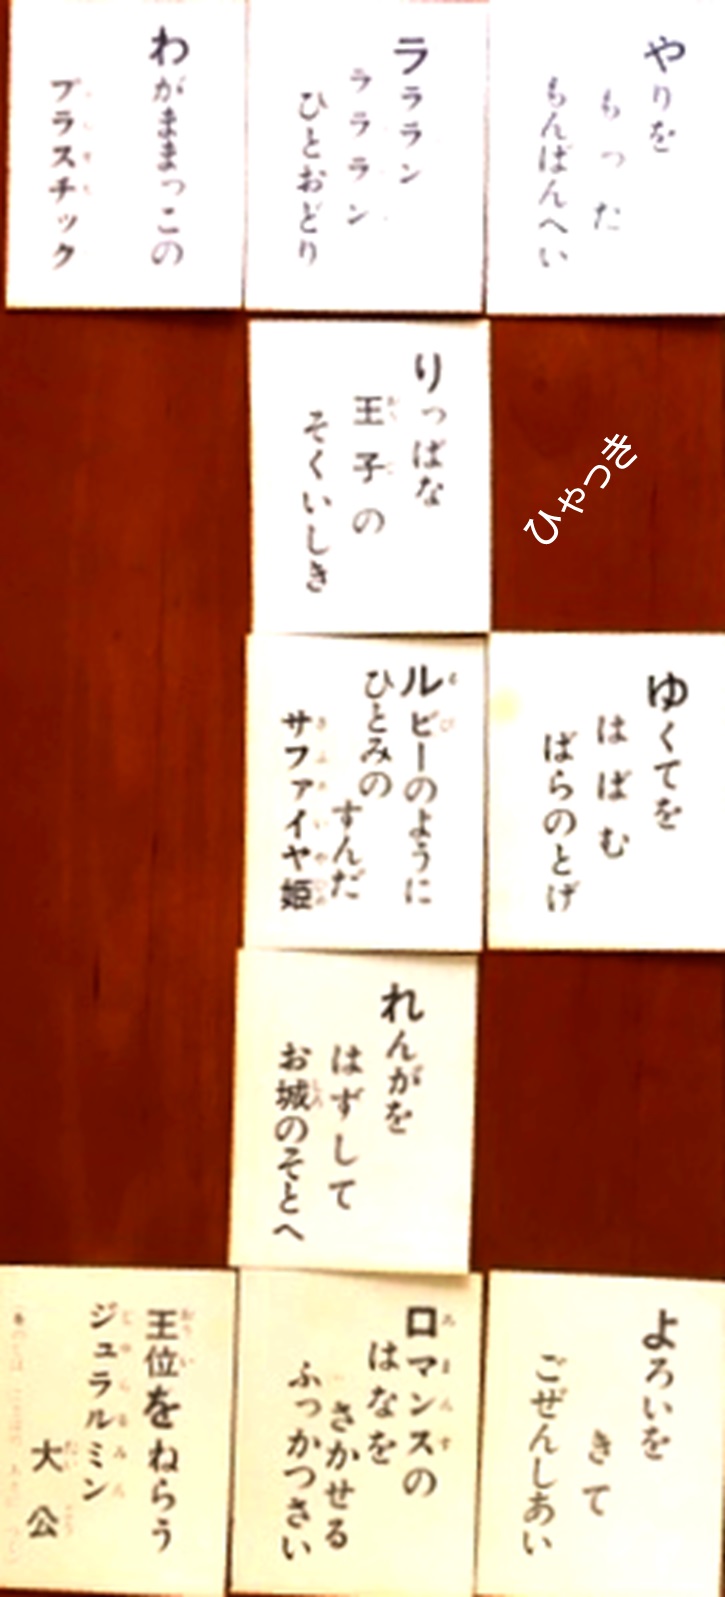 やりを
もった
もんばんへい
ラララン
ラララン
ひとおどり
わがままっこの
プラスチック
りっぱな
王子の
そくいしき
ひやつき
ゆくてを
はばむ
ばらのとげ
ルビーのように
ひとみの
すんだ
サファイヤ姫
れんがを
はずして
お城のそとへ
よろいを
きて
ごぜんしあい
ロマンスの
はなを
さかせる
ふっかつさい
王位をねらう
ジュラルミン
大公